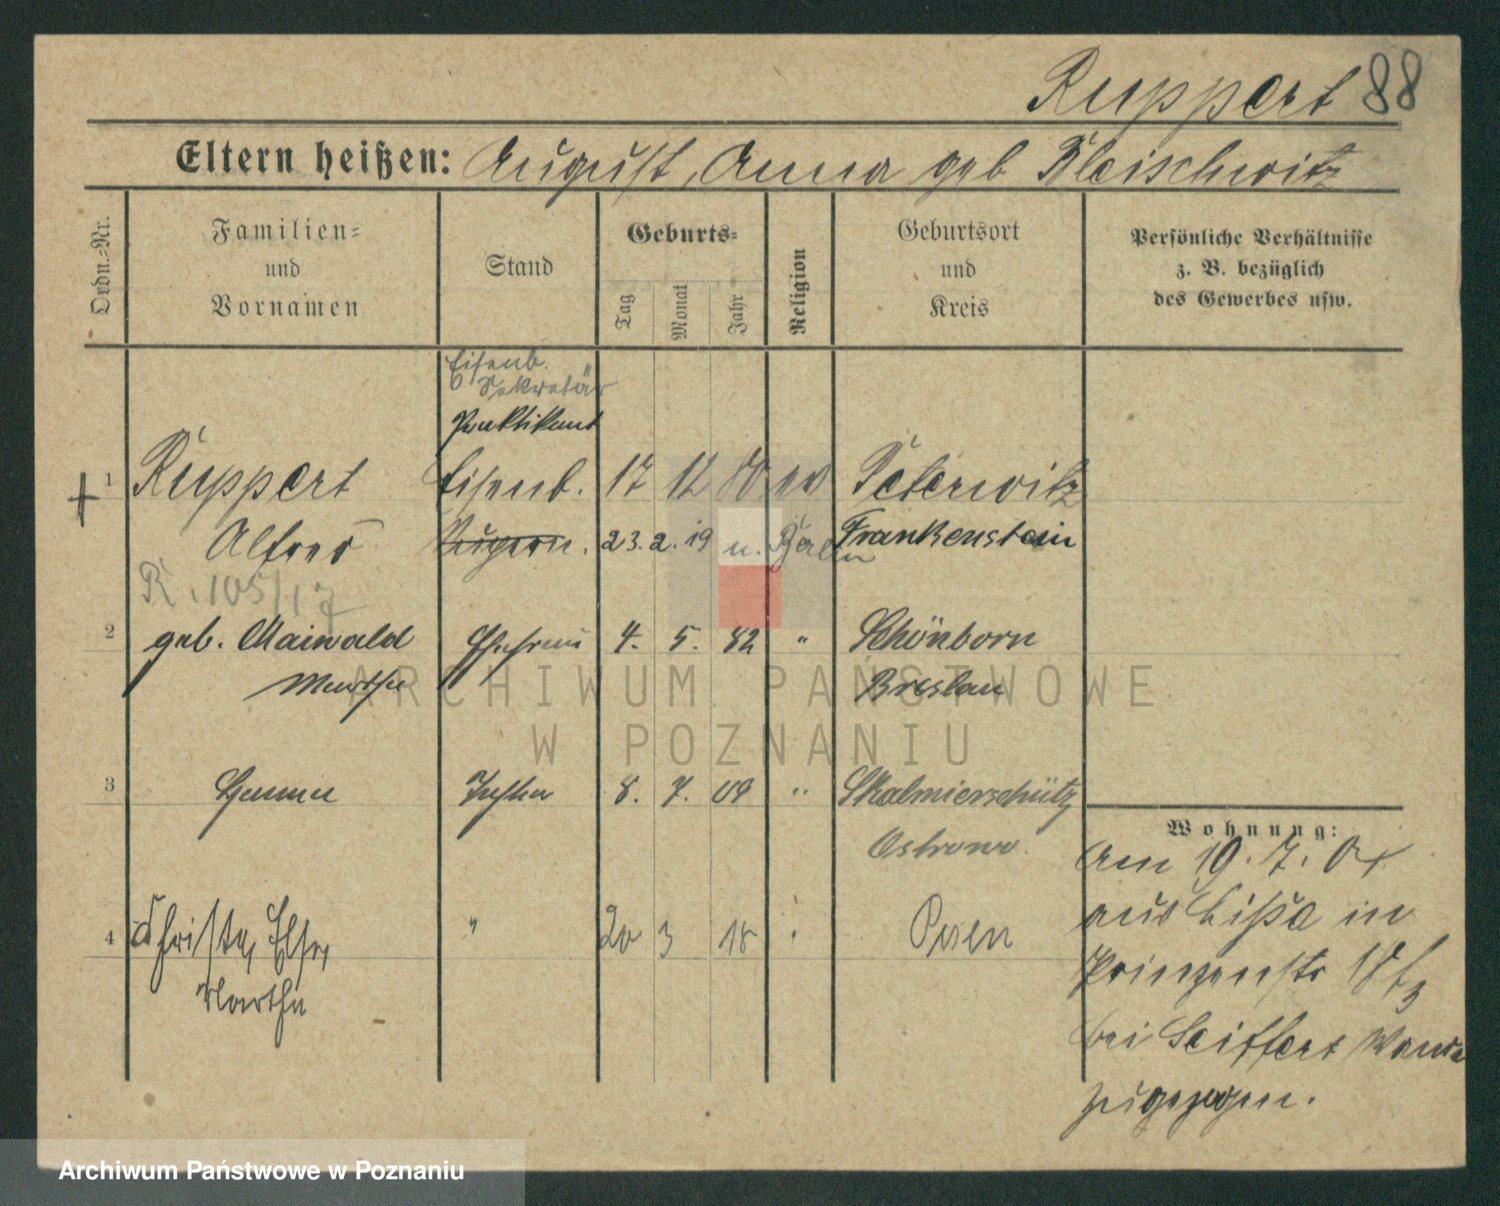 Ruppert 88
Eltern heißen: August, Anna geb Bleischwitz
Ordn.-Nr.
Familien-
und
Vornamen
Stand
Geburts-
Tag
Monat
Jahr
Religion
Geburtsort
und
Kreis
Persönliche Verhältnisse
z. B. bezüglich
des Gewerbes usw.
Eisenb.
Sekretär
Praktikant
1 Ruppert Eisenb. 17 12 80 ev Peterwitz
Alfred 23. 2. 19 u. Berlin Frankenstein
R. 105/17
2 geb. Maiwald Ehefrau 4. 5. 82 " Schönborn
Martha Breslau
3 Hanna Tochter 8. 7. 09 " Skalmierschütz
Ostrowo.
Wohnung:
Am 19. 7. 04
aus Lissa in
4 Christa, Else, " 20 3 18 " Posen
Martha
Prinzenstr
bei Seiffert Wanda
zugezogen.
ARCHIWUM PAŃSTWOWE
W POZNANIU
Archiwum Państwowe w Poznaniu